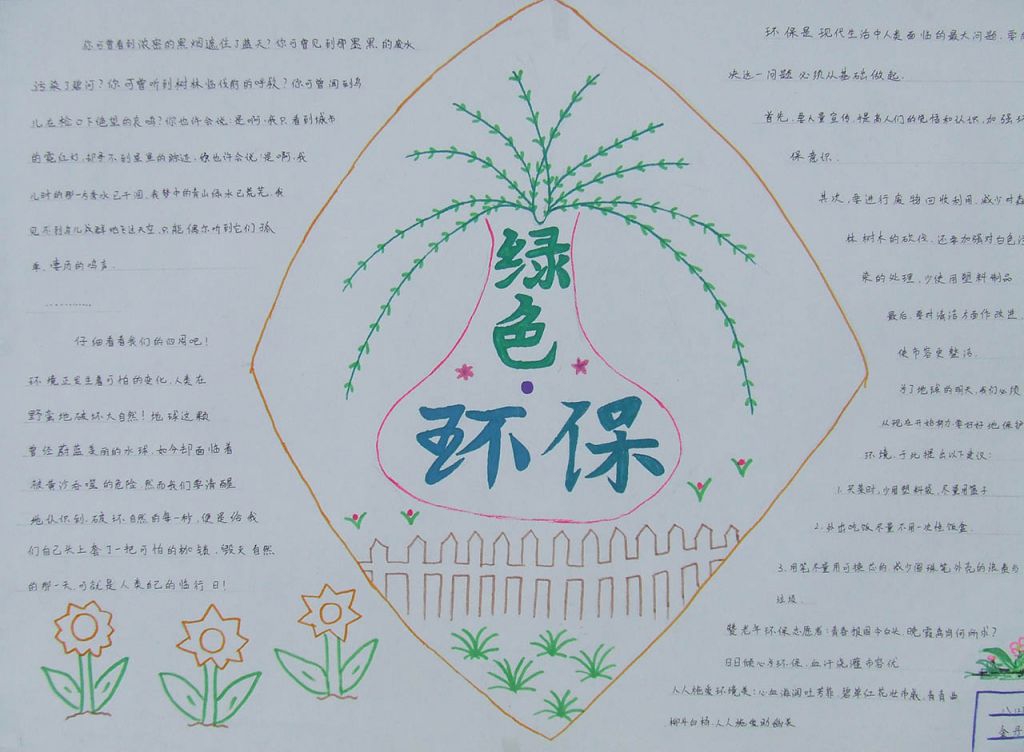 你可曾看到浓密的黑烟遮住了蓝天?你可曾见到那墨黑的废水
污染了碧河?你可曾听到树林临伐前的呼救?你可曾闻到鸟
儿在枪口下绝望的哀鸣?你也许会说:是啊,我只看到城市
的霓红灯,却寻不到星星的踪迹,你也许会说:是啊,我
儿时的那一方季水已干涸,我梦中的青山绿水已荒芜,我
见不到鸟儿成群地飞过天空,只能偶尔听到它们孤
单、凄厉的鸣声.
…………
仔细看看我们的四周吧!
环境正发生着可怕的变化,人类在
野蛮地破坏大自然!地球这颗
曾经蔚蓝美丽的水球,如今却面临着
被黄沙吞噬的危险,然而我们要清醒
地认识到,破坏自然的每一种,便是给我
们自己头上套了一把可怕的枷锁,毁灭自然
的那一天,可就是人类自己的临行日!
绿
色
·
环保
环保是现代生活中人类面临的最大问题,要
决这一问题必须从基础做起.
首先,要大量宣传,提高人们的觉悟和认识,加强环
保意识.
其次,要进行废物回收利用,减少对森
林树木的砍伐,还要加强对白色污
染的处理,少使用塑料制品
最后,要对清洁方面作改进,
使市容更整洁.
为了地球的明天,我们必须
从现在开始努力,要好好地保护
环境,于此提出以下建议:
1.买菜时,少用塑料袋,尽量用篮子
2.外出吃饭尽量不用一次性饭盒.
3.用笔尽量用可换芯的,减少圆珠笔外花的浪费与
垃圾.
赞老年环保志愿者:青春报国今白头,晚霞高尚何所求?
日日倾心为环保,血汗浇灌市容优
人人施爱环境美:心血滋润吐芳菲,碧草红花壮市威,青青
柳白杨,人人施爱